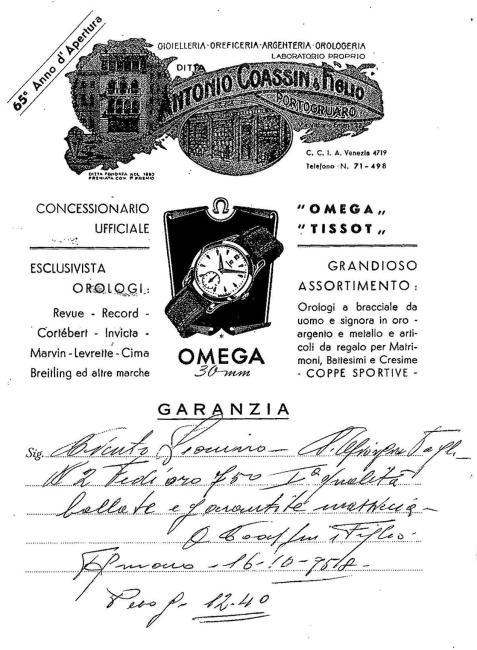 65° Anno d'Apertura
GIOIELLERIA-OREFICERIA-ARGENTERIA-OROLOGERIA
LABORATORIO PROPRIO
DITTA
ANTONIO COASSIN & FIGLIO
PORTOGRUARO
DITTA FONDATA NEL 1893
PREMIATA CON 1° PREMIO
C. C. I. A. Venezia 4719
Telefono N. 71-498
CONCESSIONARIO
UFFICIALE
"OMEGA„
"TISSOT„
ESCLUSIVISTA
OROLOGI:
Revue - Record -
Cortébert - Invicta -
Marvin - Levrette - Cima
Breitling ed altre marche
OMEGA
30 mm
GRANDIOSO
ASSORTIMENTO:
Orologi a bracciale da
uomo e signora in oro -
argento e metallo e arti-
coli da regalo per Matri-
moni, Battesimi e Cresime
- COPPE SPORTIVE -
GARANZIA
Sig.
N 2 Fedi oro 750 Iª qualità
bollate e garantite
Coassin & Figlio
16-10-958-
Peso g. 12.40